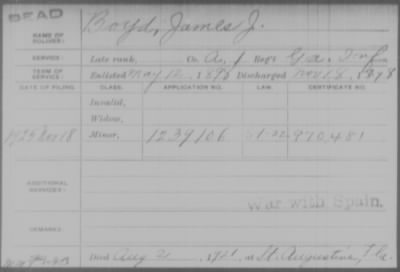 DEAD
NAME OF SOLDIER: Boyd, James J.
SERVICE: Late rank, Co. A, 1 Reg't Ga. Inf
TERM OF SERVICE: Enlisted May 12, 1898 Discharged Nov 18, 1898
DATE OF FILING. CLASS. APPLICATION NO. LAW. CERTIFICATE NO.
Invalid,
Widow,
1925 Nov 18 Minor, 1239106 970481
ADDITIONAL SERVICES:
War with Spain.
REMARKS:
Died Aug 21, 1921, at St. Augustine, Fla.